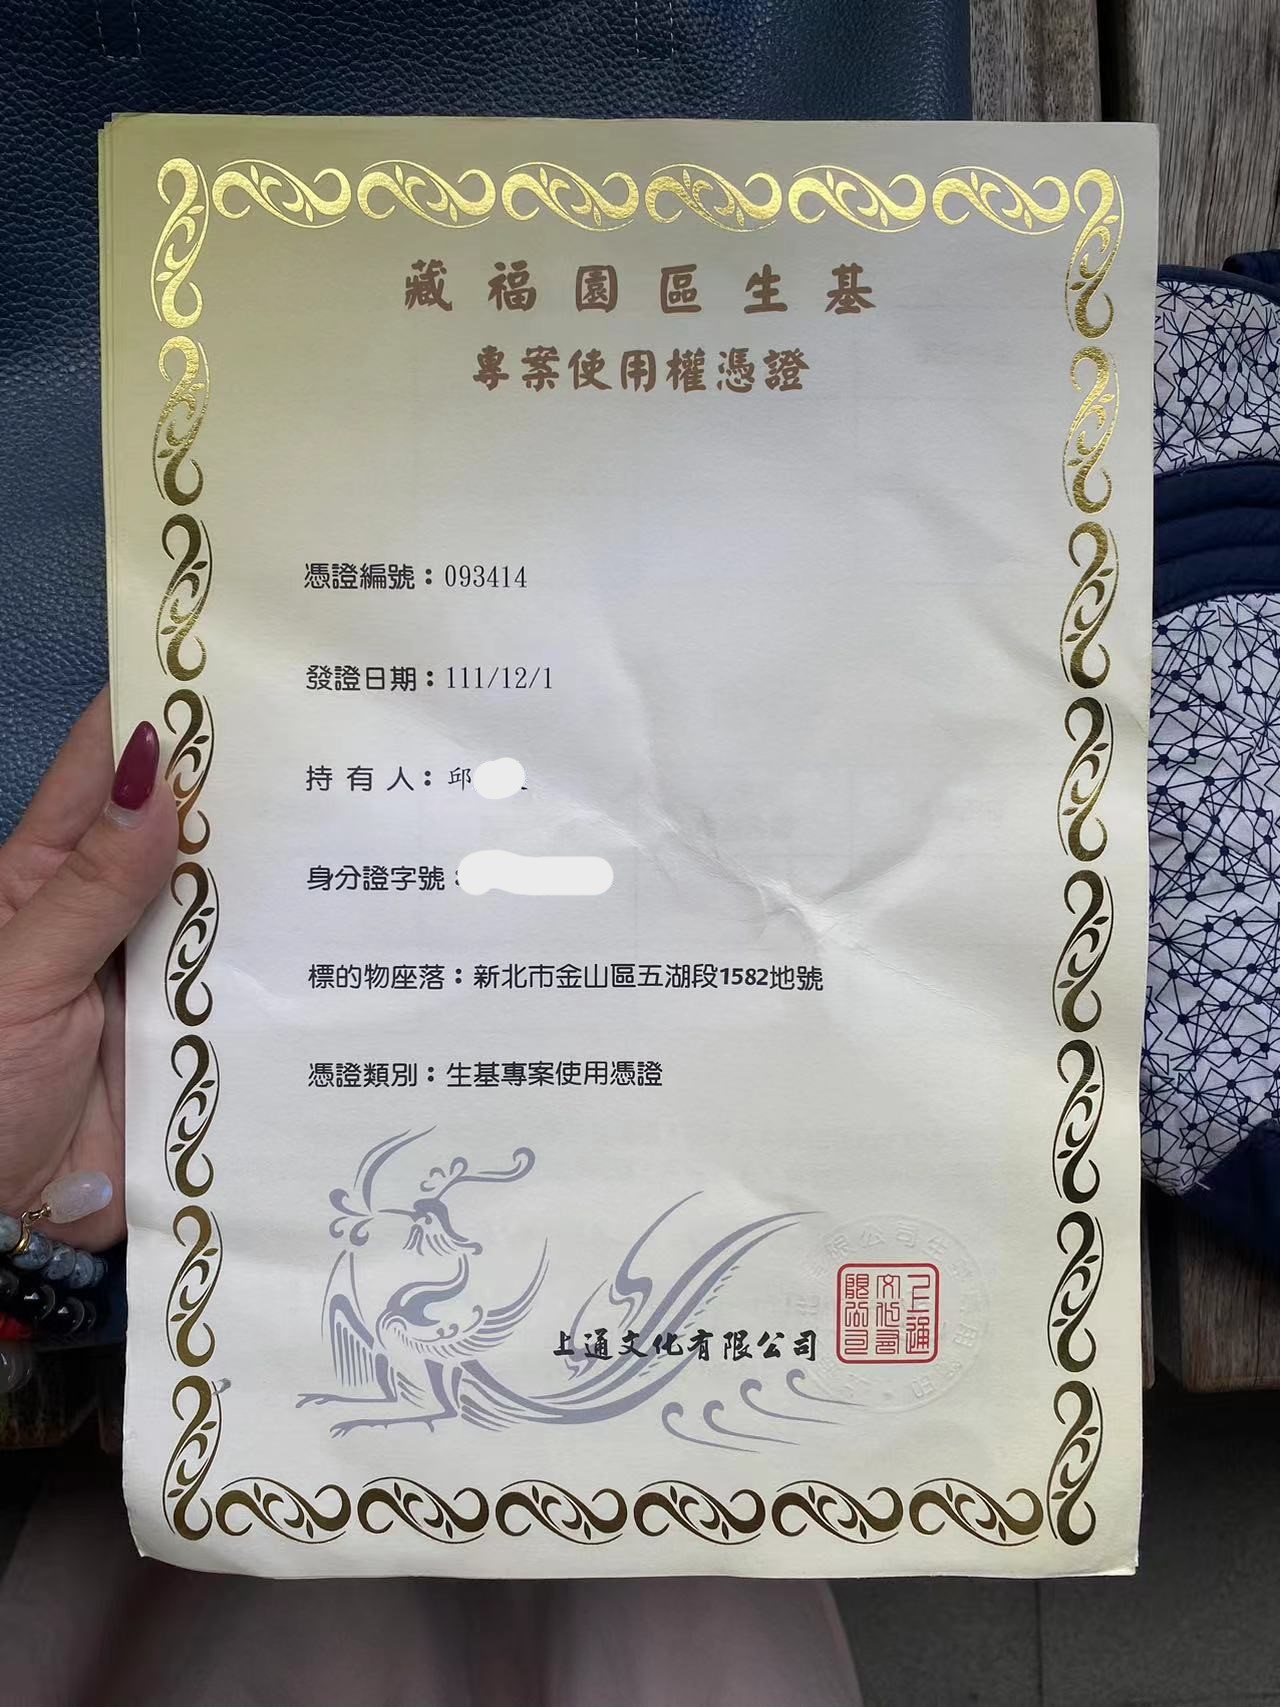 藏福園區生基
專案使用權憑證
憑證編號：093414
發證日期：111/12/1
持有人：邱
身分證字號：
標的物座落：新北市金山區五湖段1582地號
憑證類別：生基專案使用憑證
上通文化有限公司
上通文化有限公司